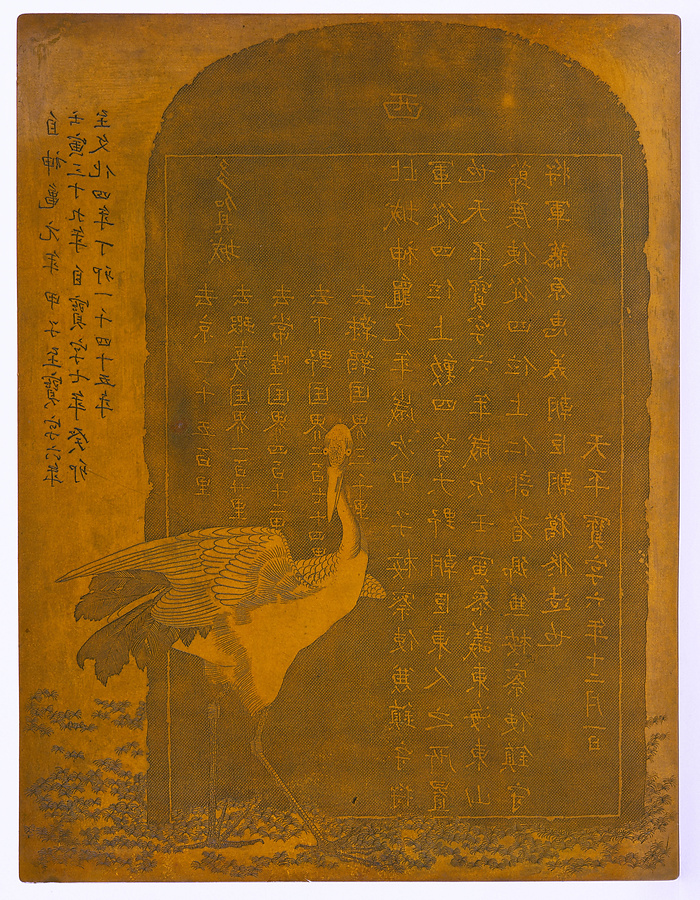 自神亀元年甲子至寳字六年
壬寅三十九年自寳字七年癸卯
至文化四年丁卯一千四十五年
西
多賀城
去京一千五百里
去蝦夷国界一百廿里
去常陸国界四百十二里
去下野国界二百七十四里
去靺鞨国界三千里
此城神龜元年歳次甲子按察使兼鎮守將
軍從四位上勲四等大野朝臣東人之所置
也天平寳字六年歳次壬寅参議東海東山
節度使從四位上仁部省卿兼按察使鎮守
將軍藤原恵美朝臣朝獦修造也
天平寳字六年十二月一日